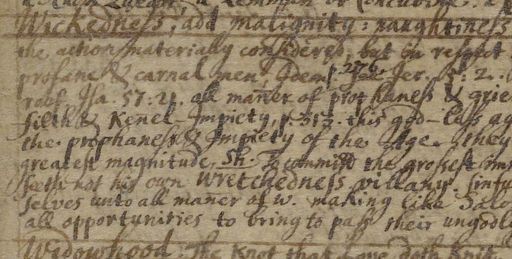 Wickedness, add malignity: naughtiness
the action materially considered, but in respect
profane & carnal men p. 276. Jer. 5: 2.
Isa. 57: 21. all maner of prophaness & grie
filth & Kenel- Impiety, p. 313. this god-less ag
the prophaness & Impiety of the Age. they
greatest magnitude, Sh. To commit the grossest
seeth not his own Wretchedness villany. sinfu
selves unto all maner of w. making like
all opportunities to bring to pass their ungodly
Widowhood. The knot that Love doth Knit